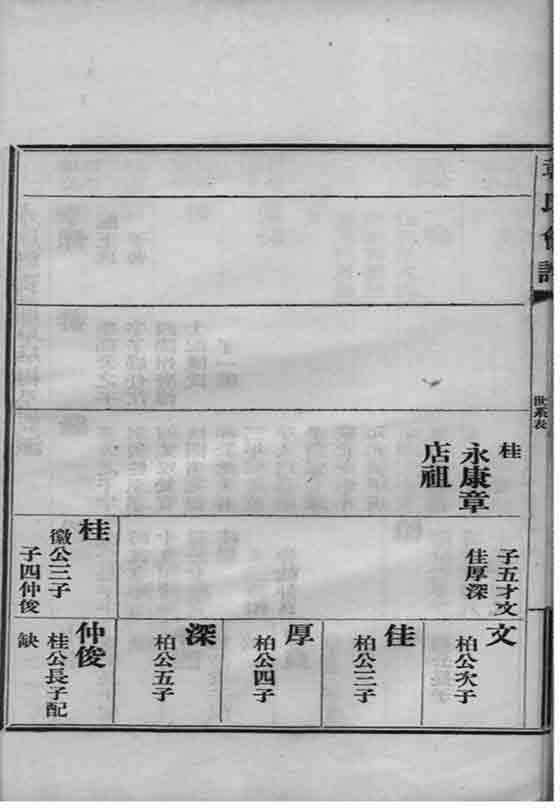 章氏會譜
世系表
桂
永康章
店祖
子五才文
佳厚深
桂
徽公三子
子四仲俊
文
柏公次子
佳
柏公三子
厚
柏公四子
深
柏公五子
仲俊
桂公長子配
缺